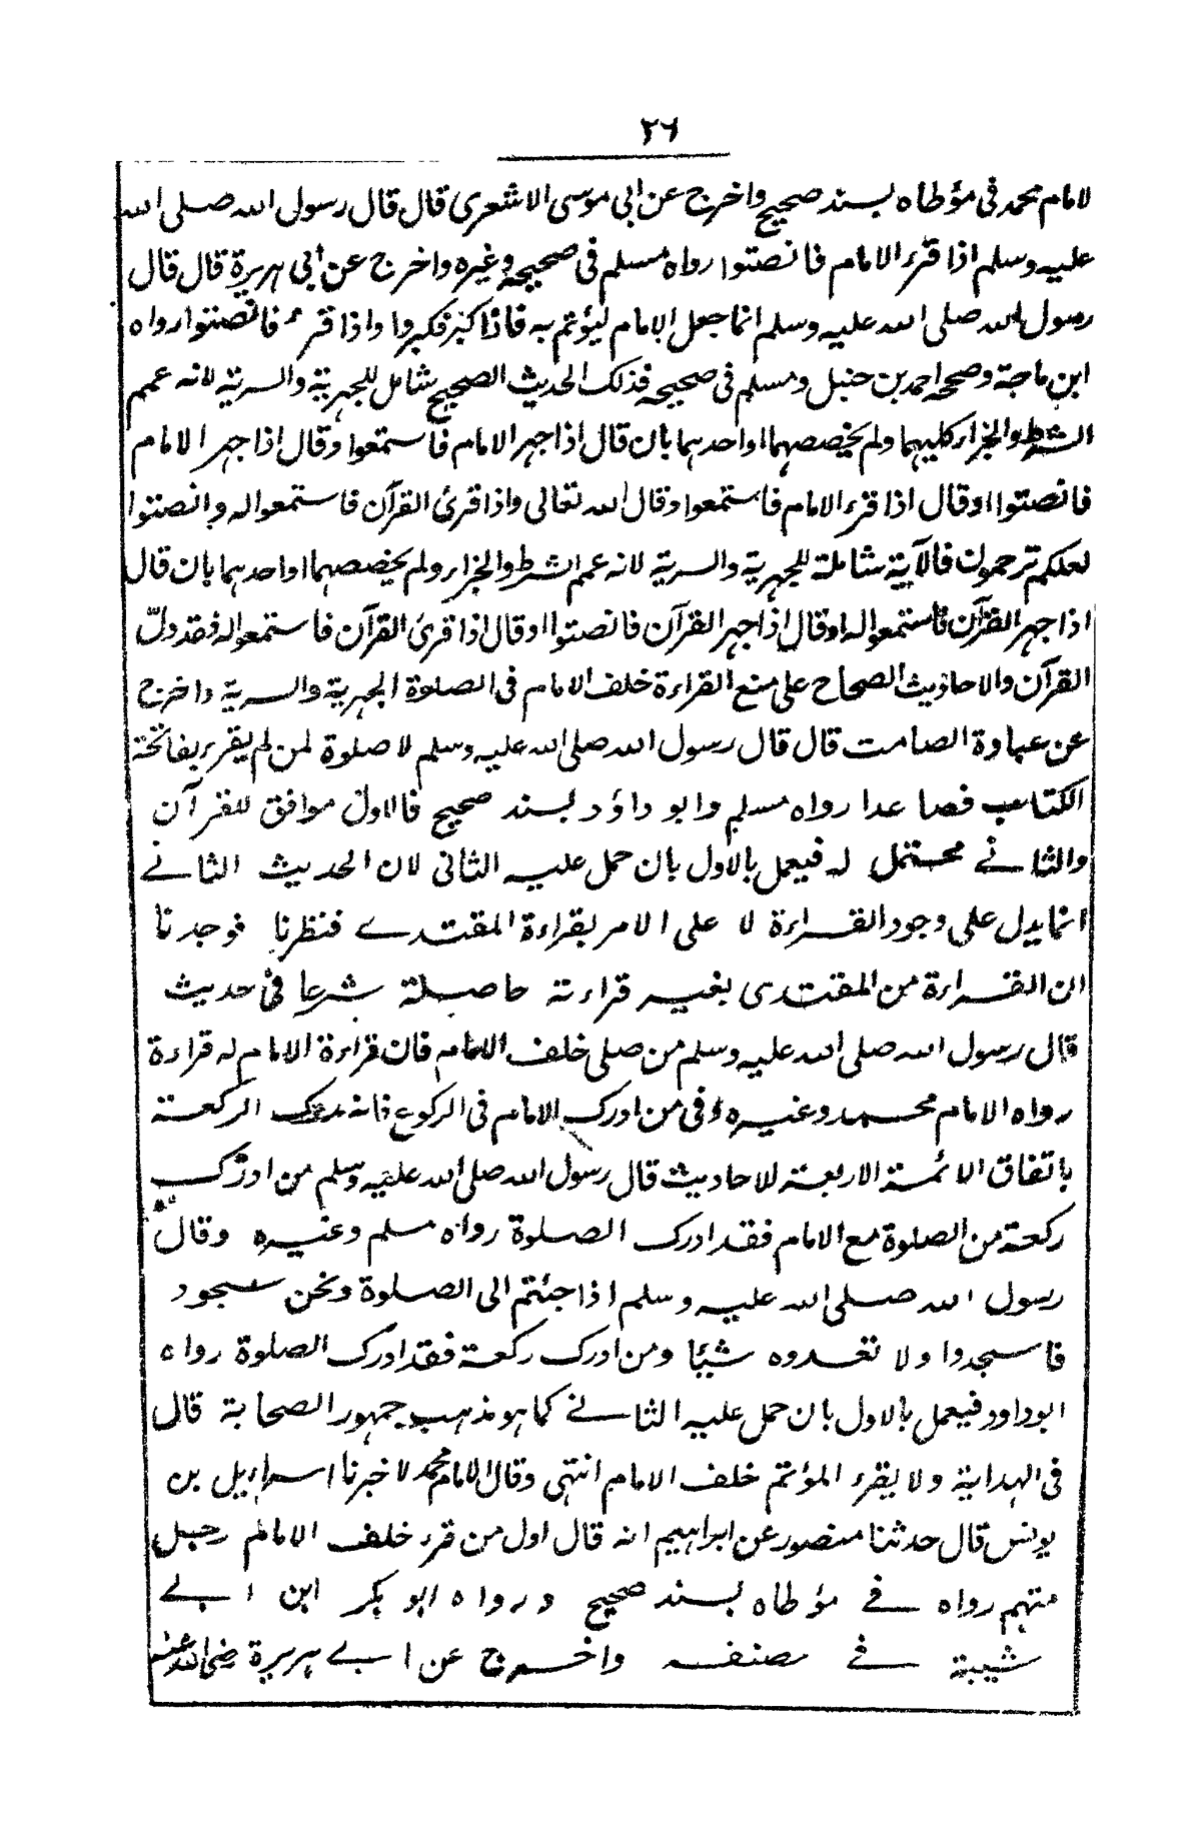 ٢٦
لامام محمد فى مؤطاه بسند صحيح واخرج عن ابى موسى الاشعرى قال قال رسول الله صلى الله
عليه وسلم اذا قرء الامام فانصتوا رواه مسلم فى صحيحه وغيره واخرج عن ابى هريرة قال قال
رسول الله صلى الله عليه وسلم انما جعل الامام ليؤتم به فاذا كبر فكبروا واذا قرء فانصتوا رواه
ابن ماجة وصححه احمد بن حنبل ومسلم فى صحيحه فذلك الحديث الصحيح شامل للجهرية والسرية لانه عمم
الشرط والجزاء كليهما ولم يخصصهما او احدهما بان قال اذا جهر الامام فاستمعوا وقال اذا جهر الامام
فانصتوا اوقال اذا قرء الامام فاستمعوا وقال الله تعالى واذا قرئ القرآن فاستمعوا له وانصتوا
لعلكم ترحمون فالآية شاملة للجهرية والسرية لانه عمم الشرط والجزاء ولم يخصصهما او احدهما بان قال
اذا جهر القرآن فاستمعوا له اوقال اذا جهر القرآن فانصتوا اوقال اذا قرئ القرآن فاستمعوا له فقد دلّ
القرآن والاحاديث الصحاح على منع القراءة خلف الامام فى الصلوة الجهرية والسرية واخرج
عن عبادة الصامت قال قال رسول الله صلى الله عليه وسلم لا صلوة لمن لم يقرء بفاتحة
الكتاب فصاعدا رواه مسلم وابو داؤد بسند صحيح فالاول موافق للقرآن
والثانے محتمل له فيعمل بالاول بان حمل عليه الثانى لان الحديث الثانے
انما يدل على وجود القراءة لا على الامر بقراءة المقتدے فنظرنا فوجدنا
ان القراءة من المقتدى بغير قراءته حاصلة شرعا فى حديث
قال رسول الله صلى الله عليه وسلم من صلى خلف الامام فان قراءة الامام له قراءة
رواه الامام محمد وغيره وفى من ادرك الامام فى الركوع فانه مدرك الركعة
باتفاق الائمة الاربعة للاحاديث قال رسول الله صلى الله عليه وسلم من ادرك
ركعة من الصلوة مع الامام فقد ادرك الصلوة رواه مسلم وغيره وقال
رسول الله صلى الله عليه وسلم اذا جئتم الى الصلوة ونحن سجود
فاسجدوا ولا تعدوه شيئا ومن ادرك ركعة فقد ادرك الصلوة رواه
ابوداود فيعمل بالاول بان حمل عليه الثانے كما هو مذهب جمهور الصحابة قال
فى الهداية ولا يقرء المؤتم خلف الامام انتهى وقال الامام محمد لا خبرنا اسرائيل بن
يونس قال حدثنا منصور عن ابراهيم انه قال اول من قرء خلف الامام رجل
متهم رواه فے مؤطاه بسند صحيح ورواه ابو بكر ابن ابے
شيبة فے مصنفه واخرج عن ابے هريرة رضى الله عنه